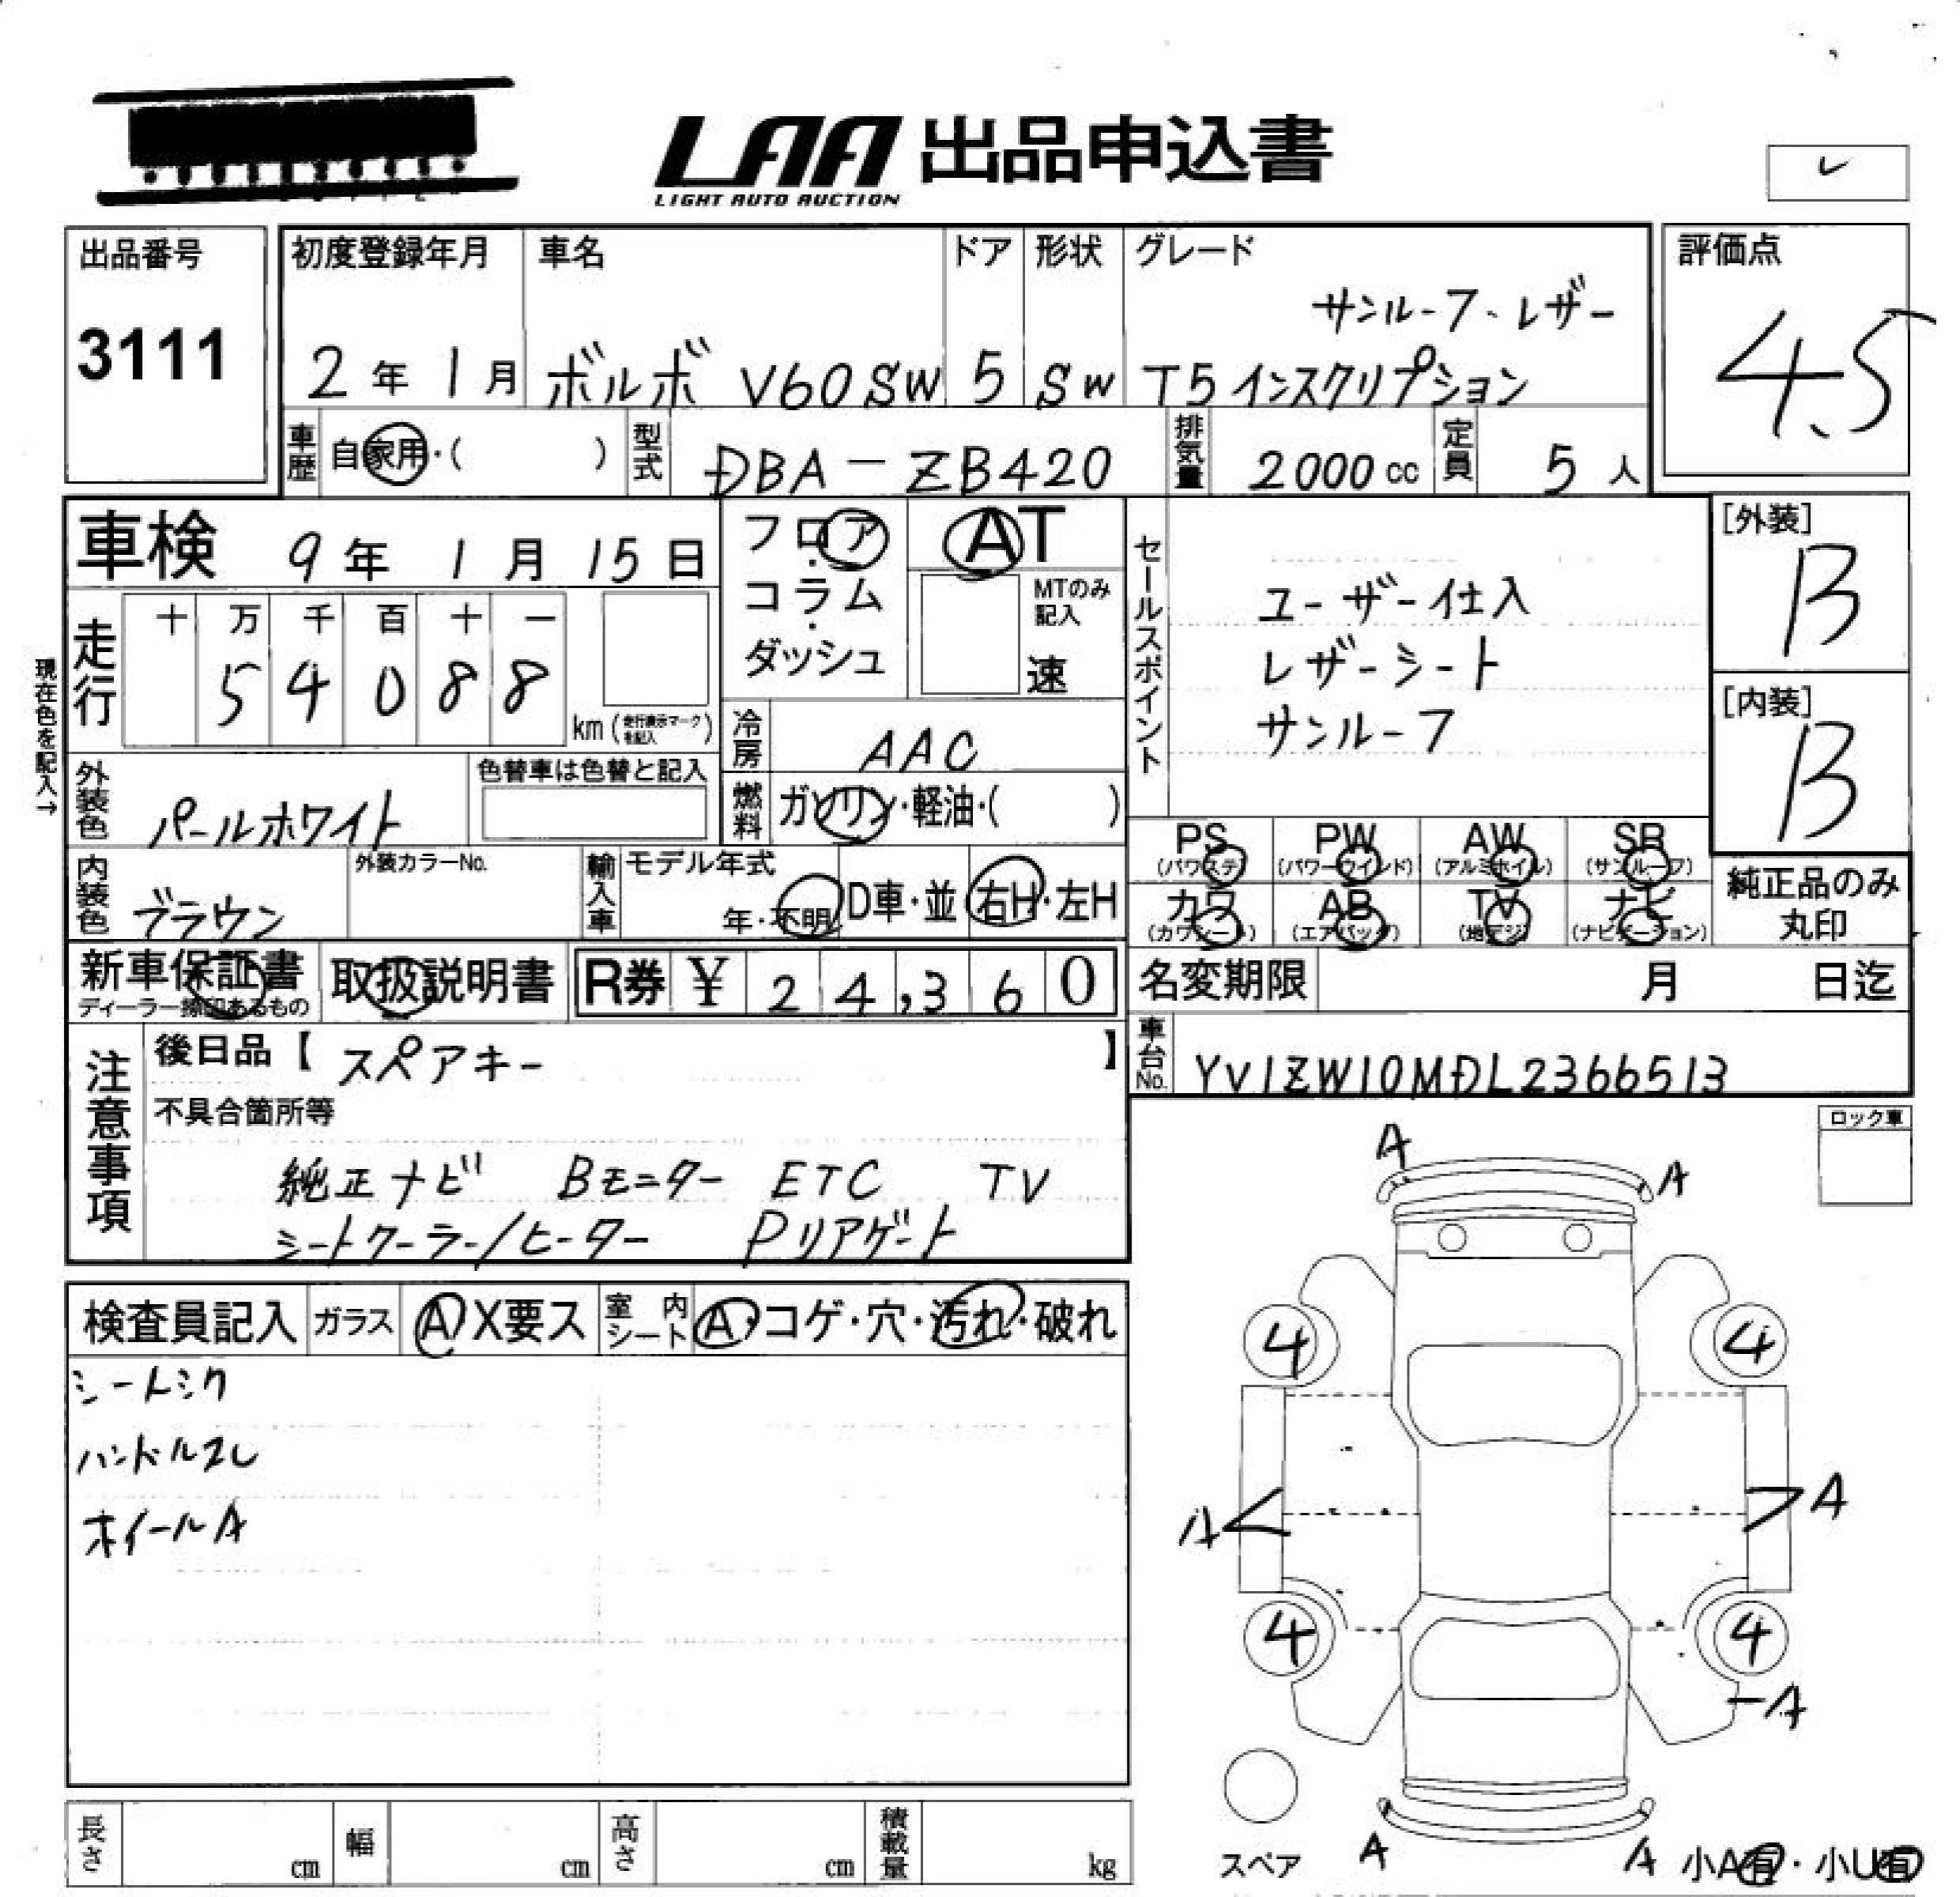 LAA 出品申込書
LIGHT AUTO AUCTION
出品番号
3111
初度登録年月
2年 1月
車名
ボルボ V60SW
ドア
5
形状
SW
グレード
サンルーフ、レザー
T5 インスクリプション
評価点
4.5
車歴 自家用・( )
型式 DBA-ZB420
排気量 2000cc
定員 5人
車検 9年 1月 15日
フロア・コラム・ダッシュ
AT
MTのみ記入
速
セールスポイント
ユーザー仕入
レザーシート
サンルーフ
[外装]
B
[内装]
B
現在色を記入→
走行
十 万 千 百 十 一
5 4 0 8 8
km (走行表示マークを記入)
冷房 AAC
外装色 パールホワイト
色替車は色替と記入
燃料 ガソリン・軽油・( )
PS (パワステ)
PW (パワーウインド)
AW (アルミホイル)
SR (サンルーフ)
カワ (カワシート)
AB (エアバッグ)
TV (地デジ)
ナビ (ナビゲーション)
純正品のみ
丸印
内装色 ブラウン
外装カラーNo.
輸入車
モデル年式
年・不明
D車・並
右H・左H
新車保証書
ディーラー捺印あるもの
取扱説明書
R券 ¥ 24,360
名変期限 月 日迄
車台No. YV1ZW10MDL2366513
注意事項
後日品【 スペアキー 】
不具合箇所等
純正ナビ Bモニター ETC TV
シートクーラー/ヒーター Pリアゲート
ロック車
検査員記入
ガラス A X要ス
室内シート A・コゲ・穴・汚れ・破れ
シートシワ
ハンドルスレ
ホイールA
A
A
4
4
A
A
4
4
A
スペア
A
A
小A有・小U有
長さ cm
幅 cm
高さ cm
積載量 kg